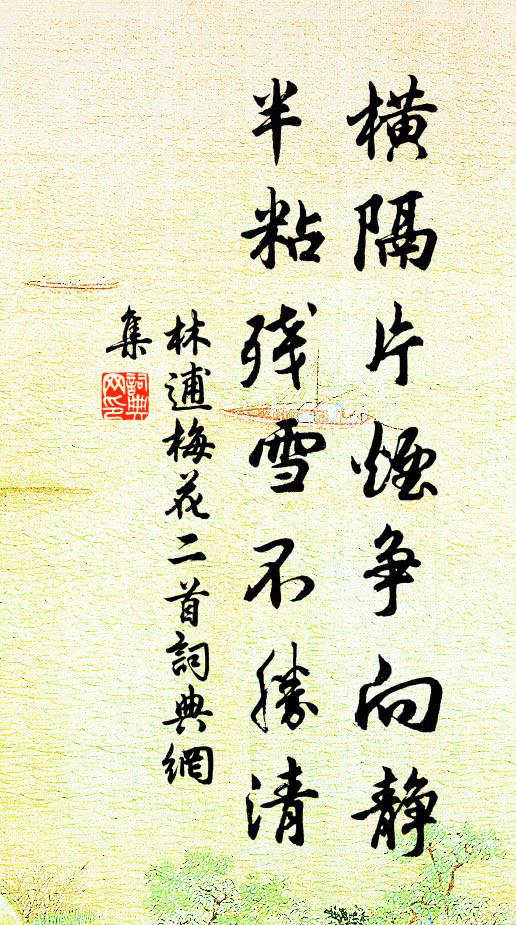 横隔片煙争向静
半粘残雪不勝清
林逋梅花二首詞典網
集
詞典
网印